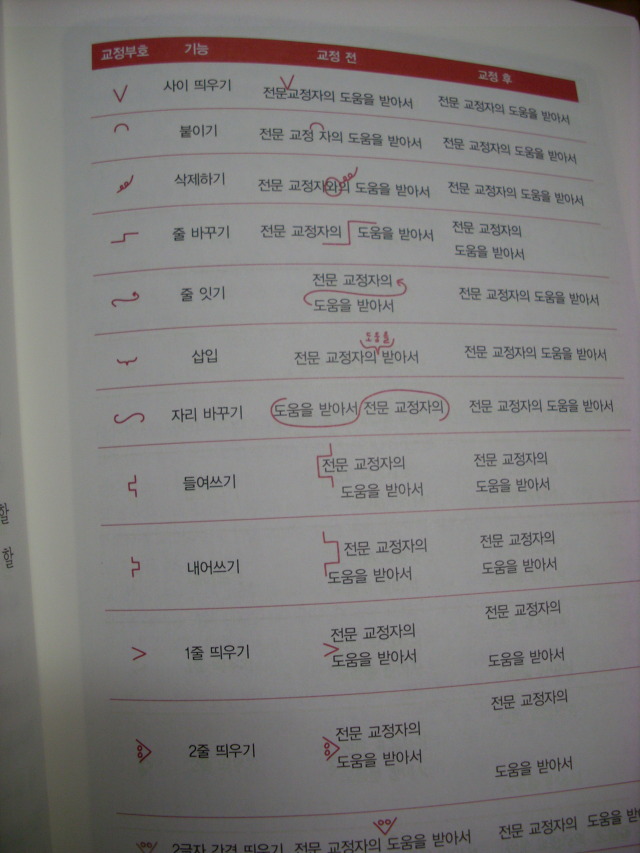 교정부호 기능 교정 전 교정 후
사이 띄우기 전문교정자의 도움을 받아서 전문 교정자의 도움을 받아서
붙이기 전문 교정 자의 도움을 받아서 전문 교정자의 도움을 받아서
삭제하기 전문 교정자와의 도움을 받아서 전문 교정자의 도움을 받아서
줄 바꾸기 전문 교정자의 도움을 받아서 전문 교정자의
도움을 받아서
줄 잇기 전문 교정자의
도움을 받아서 전문 교정자의 도움을 받아서
도움을
삽입 전문 교정자의 받아서 전문 교정자의 도움을 받아서
자리 바꾸기 도움을 받아서 전문 교정자의 전문 교정자의 도움을 받아서
들여쓰기 전문 교정자의 전문 교정자의
도움을 받아서 도움을 받아서
내어쓰기 전문 교정자의 전문 교정자의
도움을 받아서 도움을 받아서
1줄 띄우기 전문 교정자의 전문 교정자의
도움을 받아서 도움을 받아서
2줄 띄우기 전문 교정자의 전문 교정자의
도움을 받아서 도움을 받아서
2글자 간격 띄우기 전문 교정자의 도움을 받아서 전문 교정자의 도움을
할
할